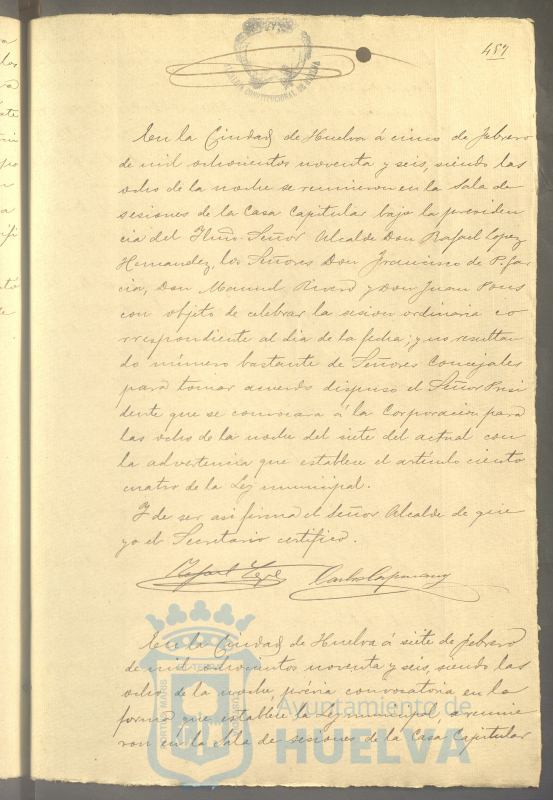 457
ALCALDIA CONSTITUCIONAL DE HUELVA
En la Ciudad de Huelva á cinco de febrero
de mil ochocientos noventa y seis, siendo las
ocho de la noche se reunieron en la Sala de
sesiones de la Casa Capitular bajo la presiden
cia del Iltmo. Señor Alcalde Don Rafael Lopez
Hernandez, los Señores Don Francisco de P. Gar
cia, Don Manuel Rivero y Don Juan Pons
con objeto de celebrar la sesion ordinaria co
rrespondiente al dia de la fecha; y no resultan
do número bastante de Señores Concejales
para tomar acuerdo dispuso el Señor Presi
dente que se convocara á la Corporacion para
las ocho de la noche del siete del actual con
la advertencia que establece el artículo ciento
cuatro de la Ley municipal.
Y de ser asi firma el Señor Alcalde de que
yo el Secretario certifico.
Rafael Lopez
En la Ciudad de Huelva á siete de febrero
de mil ochocientos noventa y seis, siendo las
ocho de la noche, prévia convocatoria en la
forma que establece la Ley municipal, se reunie
ron en la Sala de sesiones de la Casa Capitular
PORTUS MARIS
Ayuntamiento de
HUELVA